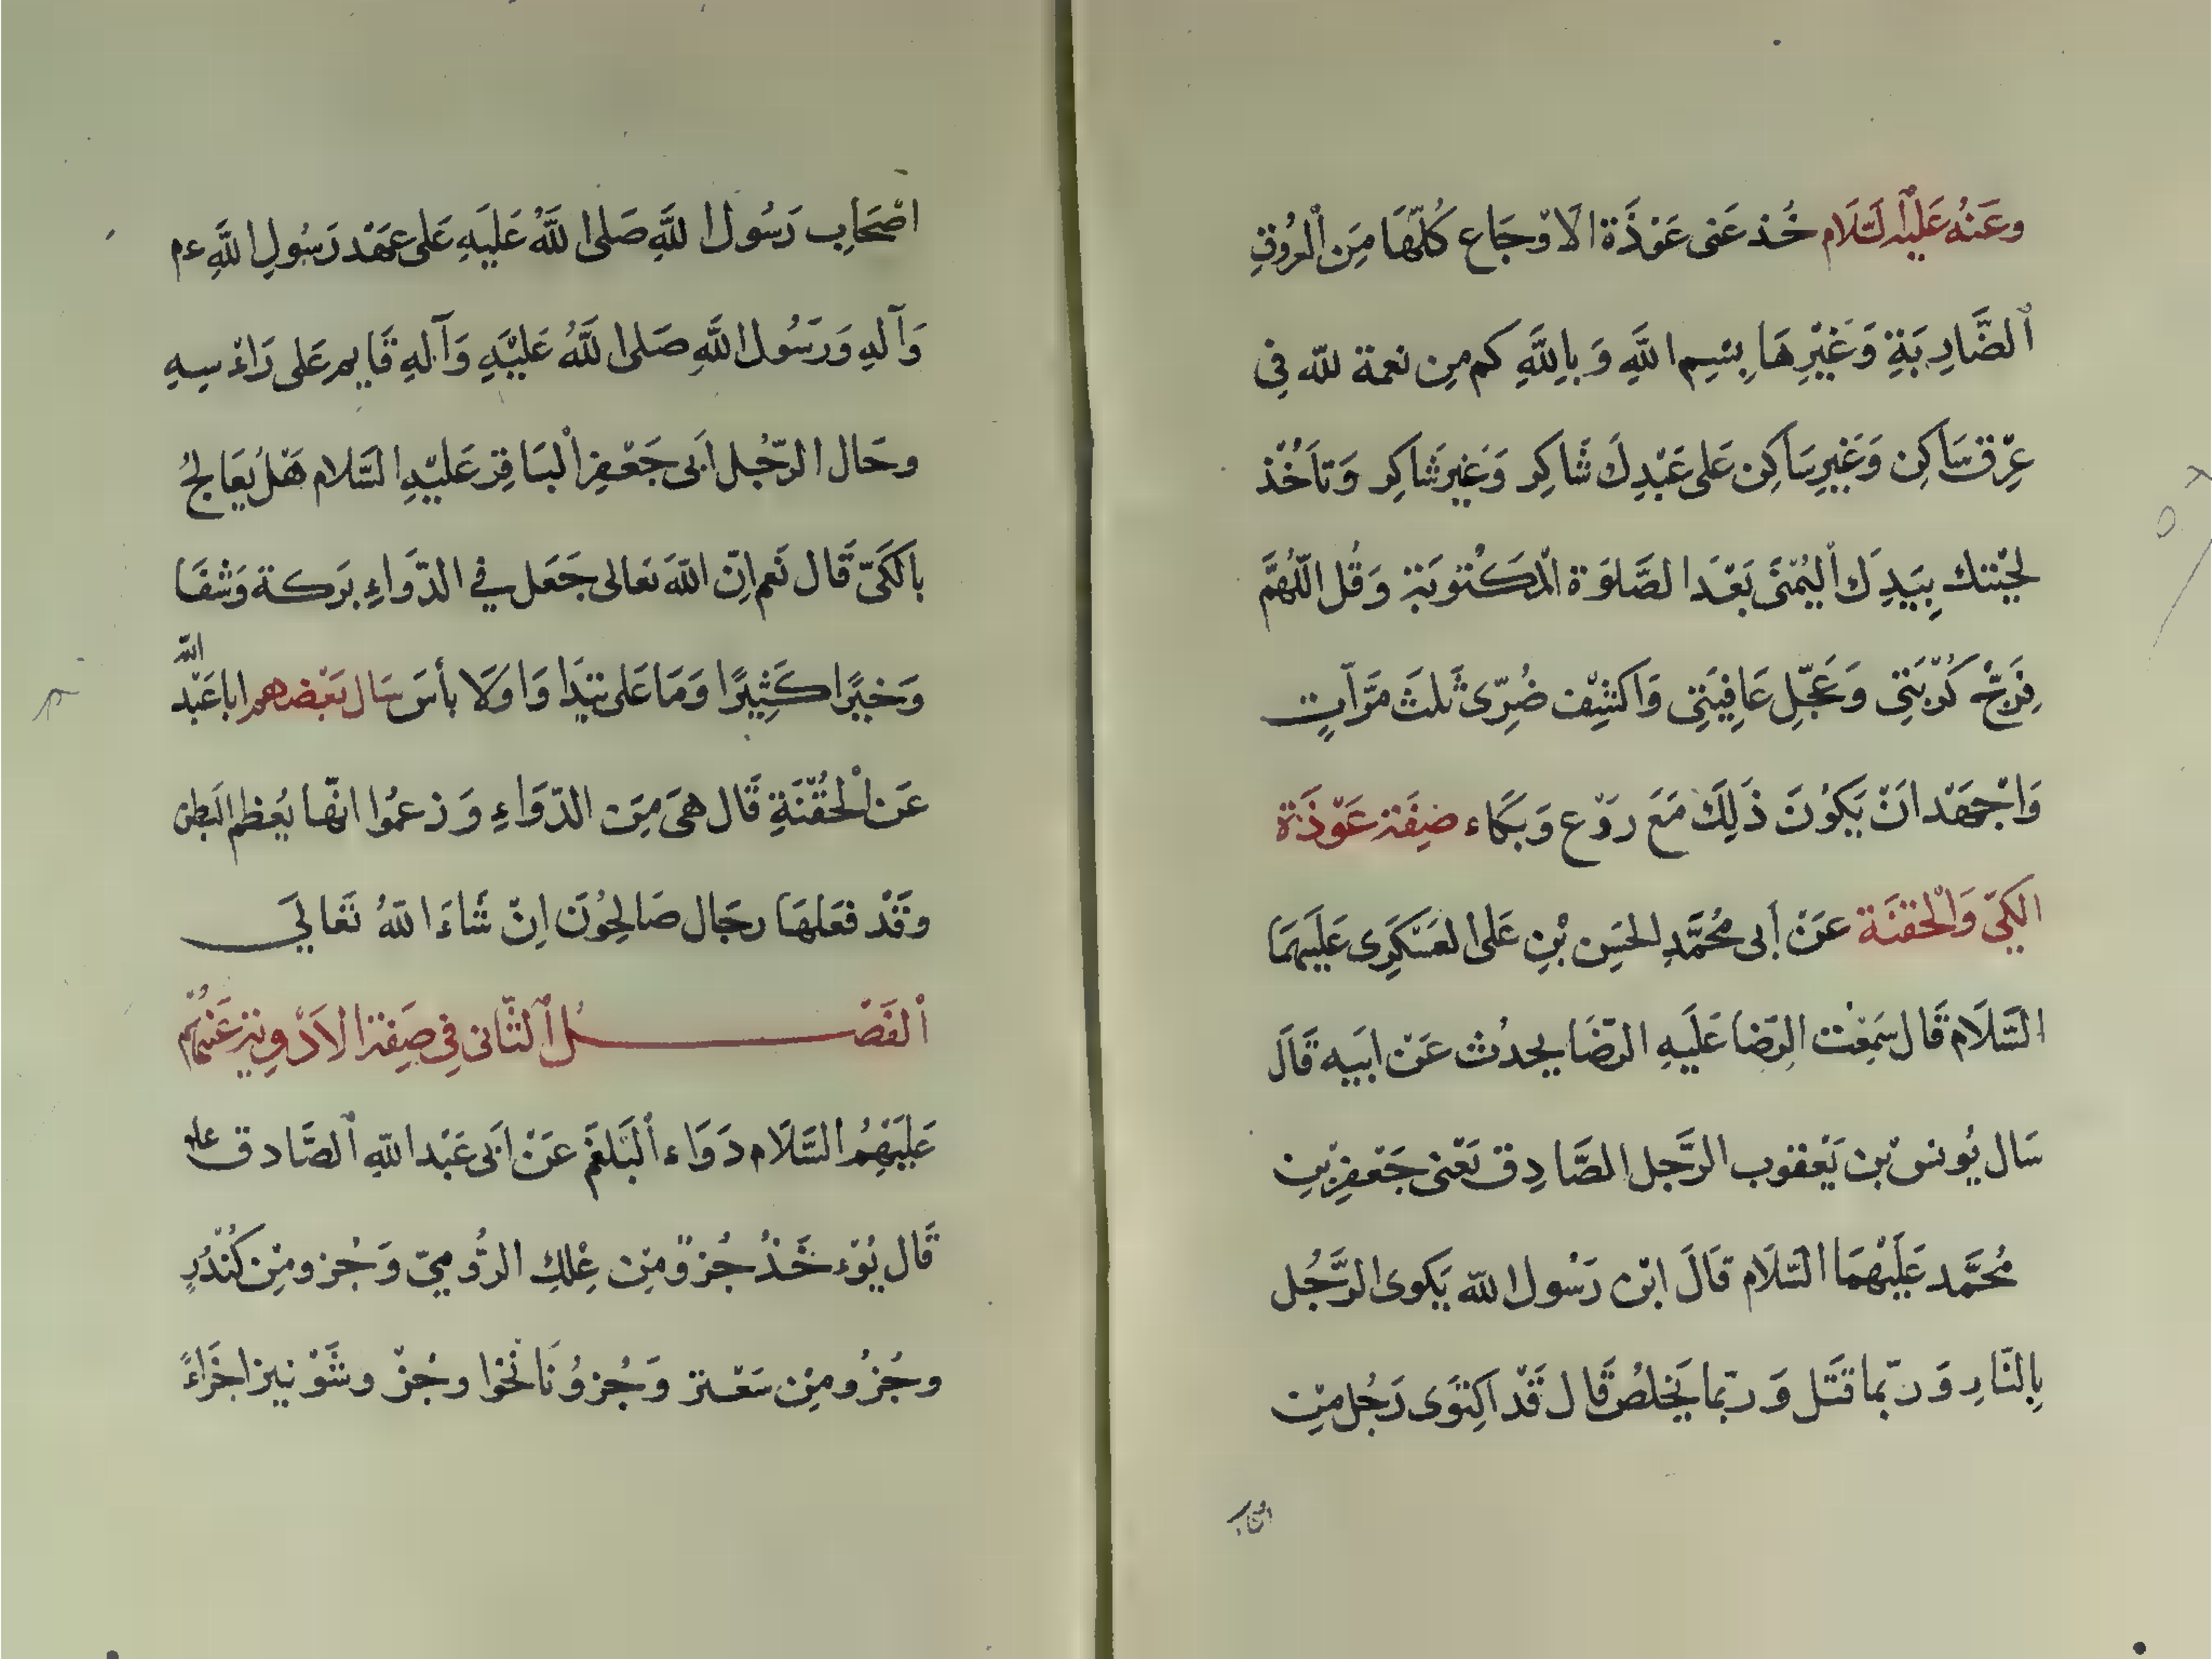 وعَنهُ عَلَيْهِ السَّلَام خُذ عَنى عَوْذَة الَاوْجَاع كُلّهَا مِنَ الْعُروُقِ
اْلضَّارِبَةِ وَغَيْرِهَا بِسْمِ اللَّهِ وَبِاللَّهِ كم مِن نعمة للّه فى
عِرْق سَاكِن وَغَيرِ سَاكِن عَلى عَبْدِكَ شَاكِر وَغَيرَ شَاكِر وَتأخُذ
لحْيتك بِيَدِكَ اْليُمْنَى بَعْدَ الصَّلوَة المكْتوبَة وَقُل اللّهُمَّ
فَرِجّ كُرْبَتِى وَعَجِّل عَافِيَتِى وَاكشِف ضُرِّى ثَلثَ مَرَّاتٍ
وَاجْهَد انَ يَكوُنَ ذَلِكَ مَعَ رَوْع وَبَكَاء صِفَة عَوْذَة
الكَىّ وَالْحقنَة عَنْ اَبى مُحَمَّدِ الحَسِن بْنِ عَلى العَسْكَرِى عَلَيهمَا
السَّلَام قَال سَمِعْت الرِضا عَلَيهِ الرّضَا يحدُث عَنْ ابَيه قَالَ
سَال يُونس بْن يَعْقوب الرَّجل الصَّادِق يَعْنى جَعْفرِ بْنِ
مُحَمَّد عَلَيْهمَا السَّلَام قَالَ ابْن رَسُول اللّه يَكوى الرَّجُل
بِالنّارِ وَربّما قَتَل وَربّما يَخلصُ قَال قَدْ اكتوَى رَجُل مِنْ
اصْحَابِ رَسُول اللَّهِ صَلى اللَّهُ عَلَيَهِ عَلى عَهْد رَسُولِ اللَّهِ ءم
وَآلهِ وَرَسُول اللَّهِ صَلى اللَّهُ عَليْهِ وَآلهِ قَايم عَلى رَاءْسِهِ
وحَال الرّجُل اَبى جَعْفِر الْبَاقِر عَليْهِ السَّلام هَلْ يُعَالجُ
بالَكَىّ قَال نَعم اِنّ اللّهَ تعالى جَعَل في الدّوَاءِ بَركة وَشفَا
وَخيًرا كَثِيرًا وَمَا عَلى تَدَاوَا وَلَا بأسَ سَال بَعْضهم ابا عَبْد اللّه
عَن الْحُقْنَةِ قَال هىَ مِنَ الدّوَاءِ وَزعمُوا انّها يُعظم البَطن
وقَدْ فعَلهَا رجَال صَالِحُونَ اِنْ شَاءَ اللّهُ تَعَاليَ
اْلفَصْل اْلثّانى فِى صِفَة الاَدْوِيَة عَنهُم
عَلَيْهِمُ السَّلَام دَوَاء اْلبَلغَم عَنْ اَبى عَبْد اللّهِ اْلصَّادق علم
قَال يُوْءخَذُ جُزوًمِن عِلكِ الرُّوميّ وَجُزومِن كُنْدُرٍ
وجُزُومِن سَعْتر وَجُزوُنَانخوا وجُزْ وشَوْنيز اجَزاءً